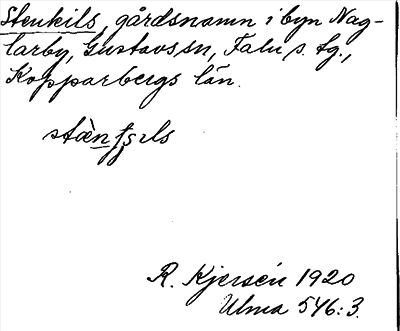 Stenkils, gårdsnamn i byn Nag-
larby, Gustavs sn, Falu s. tg.,
Kopparbergs län.
R. Kjersén 1920
Ulma 546:3.